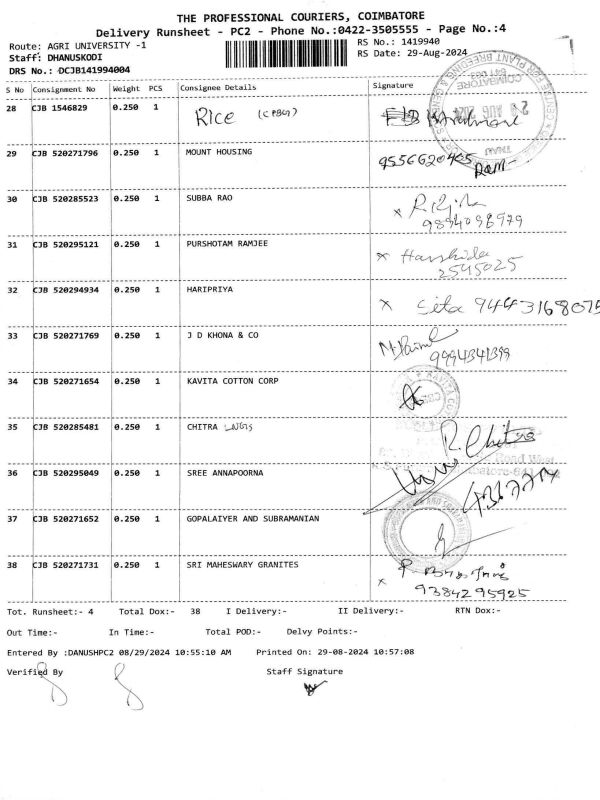 THE PROFESSIONAL COURIERS, COIMBATORE
Delivery Runsheet - PC2 - Phone No.:0422-3505555 - Page No.:4
Route: AGRI UNIVERSITY -1 RS No.: 1419940
Staff: DHANUSKODI RS Date: 29-Aug-2024
DRS No.: DCJB141994004
S No Consignment No Weight PCS Consignee Details Signature
28 CJB 1546829 0.250 1 RICE (CPBG)
29 CJB 520271796 0.250 1 MOUNT HOUSING 9556620405
30 CJB 520285523 0.250 1 SUBBA RAO
9894098979
31 CJB 520295121 0.250 1 PURSHOTAM RAMJEE
2545025
32 CJB 520294934 0.250 1 HARIPRIYA Sita 9443168075
33 CJB 520271769 0.250 1 J D KHONA & CO
9994341399
34 CJB 520271654 0.250 1 KAVITA COTTON CORP
35 CJB 520285481 0.250 1 CHITRA R. Chitra
36 CJB 520295049 0.250 1 SREE ANNAPOORNA
37 CJB 520271652 0.250 1 GOPALAIYER AND SUBRAMANIAN
38 CJB 520271731 0.250 1 SRI MAHESWARY GRANITES
9384295925
Tot. Runsheet:- 4 Total Dox:- 38 I Delivery:- II Delivery:- RTN Dox:-
Out Time:- In Time:- Total POD:- Delvy Points:-
Entered By :DANUSHPC2 08/29/2024 10:55:10 AM Printed On: 29-08-2024 10:57:08
Verified By Staff Signature